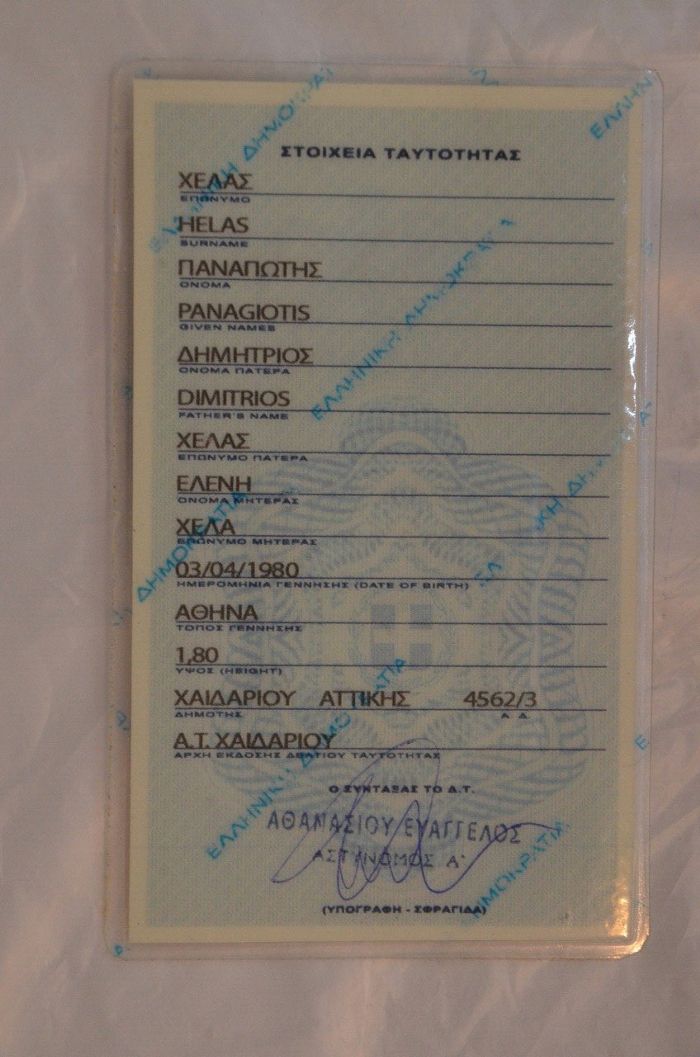 ΣΤΟΙΧΕΙΑ ΤΑΥΤΟΤΗΤΑΣ
ΧΕΛΑΣ
ΕΠΩΝΥΜΟ
HELAS
SURNAME
ΠΑΝΑΓΙΩΤΗΣ
ΟΝΟΜΑ
PANAGIOTIS
GIVEN NAMES
ΔΗΜΗΤΡΙΟΣ
ΟΝΟΜΑ ΠΑΤΕΡΑ
DIMITRIOS
FATHER'S NAME
ΧΕΛΑΣ
ΕΠΩΝΥΜΟ ΠΑΤΕΡΑ
ΕΛΕΝΗ
ΟΝΟΜΑ ΜΗΤΕΡΑΣ
ΧΕΛΑ
ΕΠΩΝΥΜΟ ΜΗΤΕΡΑΣ
03/04/1980
ΗΜΕΡΟΜΗΝΙΑ ΓΕΝΝΗΣΗΣ (DATE OF BIRTH)
ΑΘΗΝΑ
ΤΟΠΟΣ ΓΕΝΝΗΣΗΣ
1,80
ΥΨΟΣ (HEIGHT)
ΧΑΙΔΑΡΙΟΥ ΑΤΤΙΚΗΣ 4562/3
ΔΗΜΟΤΗΣ Α.Δ.
Α.Τ. ΧΑΙΔΑΡΙΟΥ
ΑΡΧΗ ΕΚΔΟΣΗΣ ΔΕΛΤΙΟΥ ΤΑΥΤΟΤΗΤΑΣ
Ο ΣΥΝΤΑΞΑΣ ΤΟ Δ.Τ.
ΑΘΑΝΑΣΙΟΥ ΕΥΑΓΓΕΛΟΣ
ΑΣΤΥΝΟΜΟΣ Α'
(ΥΠΟΓΡΑΦΗ - ΣΦΡΑΓΙΔΑ)
ΕΛΛΗΝΙΚΗ ΔΗΜΟΚΡΑΤΙΑ